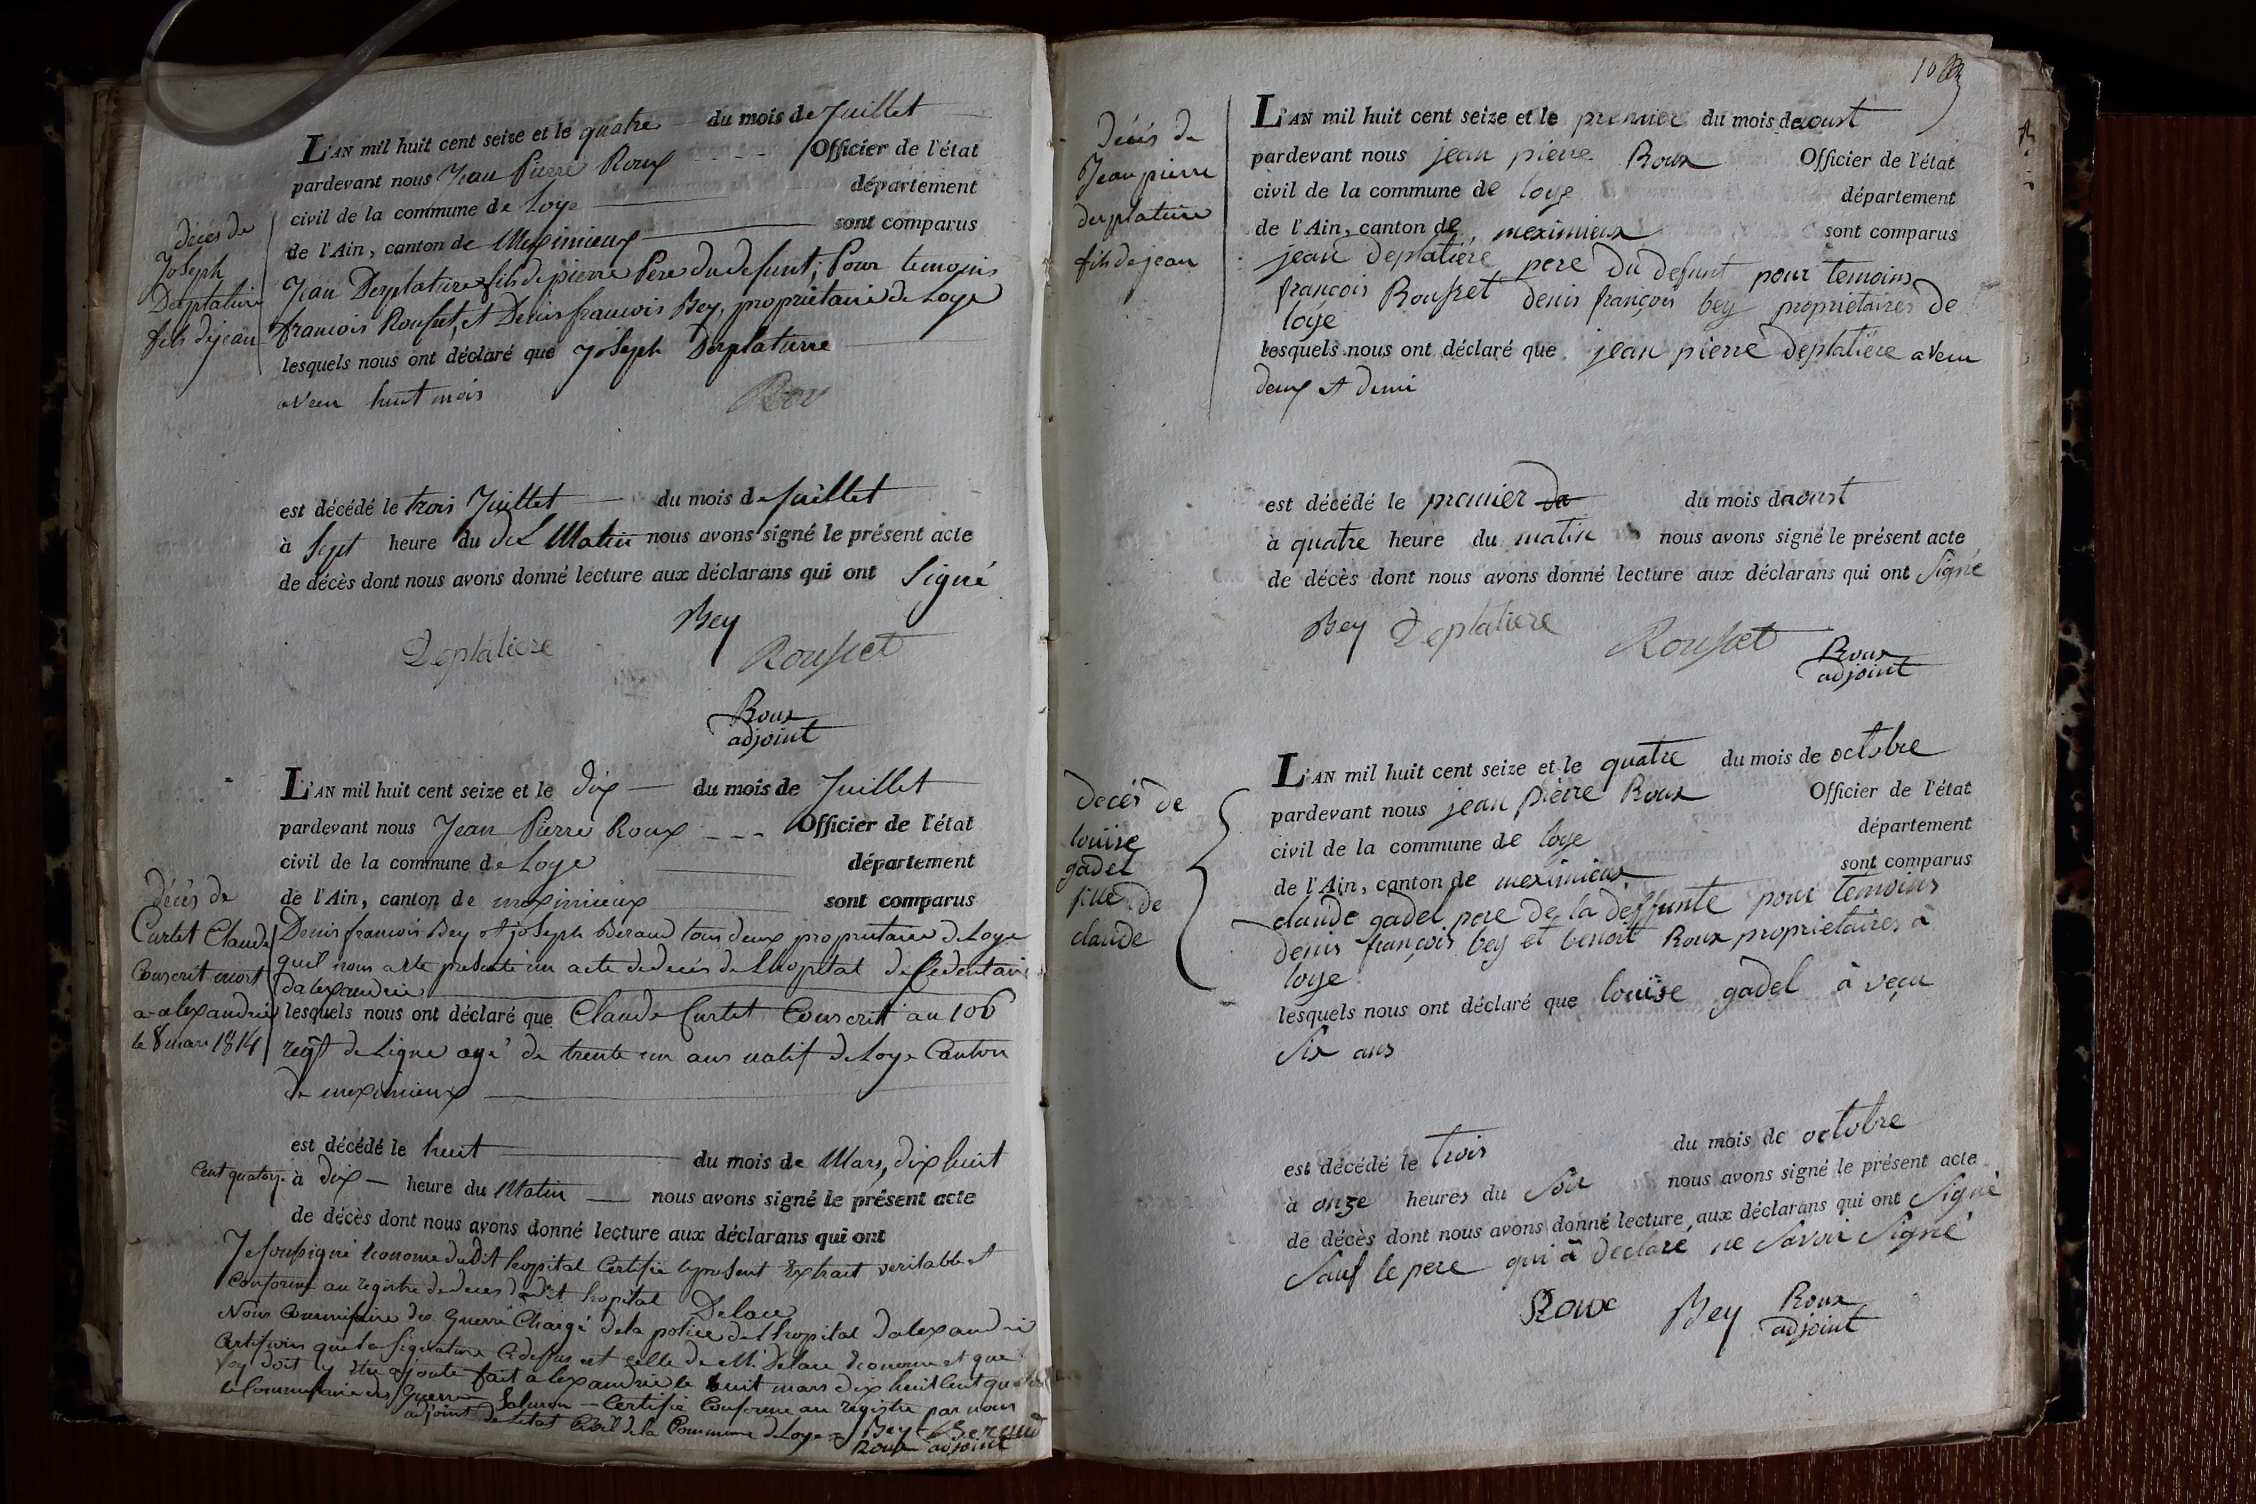 L'AN mil huit cent seize et le quatre du mois de Juillet
pardevant nous Jean Pierre Roux Officier de l'état
civil de la commune de Loye département
de l'Ain, canton de Meximieux sont comparus
décés de
Joseph
Desplature
fils de jean
Jean Desplature fils de pierre Pere du defunt, Pour temoins
francois Rousset, et Denis francois Bey, propriétaire de Loye
lesquels nous ont déclaré que Joseph Desplaturre
a vecu huit mois
Rou
est décédé le trois Juillet du mois de Juillet
à Sept heure du Matin nous avons signé le présent acte
de décès dont nous avons donné lecture aux déclarans qui ont Signé
Bey
Deplatiere Rousset
Roux
adjoint
L'AN mil huit cent seize et le dix du mois de Juillet
pardevant nous Jean Pierre Roux Officier de l'état
civil de la commune de Loye département
de l'Ain, canton de meximieux sont comparus
décés de
Curtet Claude
Conscrit mort
a alexandrie
le 8 mars 1814
Denis francois Bey et joseph Beraud tous deux proprietaires de Loye
quil nous a été presenté un acte de decés de Lhopital de
dalexandrie
lesquels nous ont déclaré que Claude Curtet Conscrit au 106
regt de Ligne agé de trente un ans natif de Loye Canton
de meximieux
est décédé le huit du mois de Mars, dix huit
Cent quatorz. à dix heure du Matin nous avons signé le présent acte
de décès dont nous avons donné lecture aux déclarans qui ont
Je soussigné Econome dudit hopital Certifie le present Extrait veritable et
Conforme au registre de deces dudit hopital Delace
Nous Commissaire des Guerre Chargé de la police de Lhopital dalexandrie
Certifions que la Signature Cidessus est celle de Mr. Delace Econome et que
foy doit y etre ajoutée fait a alexandrie le huit mars dix huit Cent
le Commissaire des Guerre Salmon - Certifié Conforme au registre par nous
adjoint de Letat Civil de la Commune de Loye Bey Beraud
Roux adjoint
L'AN mil huit cent seize et le premier du mois de aoust
pardevant nous jean pierre Roux Officier de l'état
civil de la commune de loye département
de l'Ain, canton de meximieux sont comparus
Décés de
Jean pierre
desplature
fils de jean
jean deplatiére pere du defunt pour temoins
françois Rousset denis françois bey propriétaires de
loye
lesquels nous ont déclaré que jean pierre deplatiere a vecu
deux et demi
est décédé le premier du mois daoust
à quatre heure du matin nous avons signé le présent acte
de décès dont nous avons donné lecture aux déclarans qui ont Signé
Bey Deplatiere Rousset Roux
adjoint
L'AN mil huit cent seize et le quatre du mois de octobre
pardevant nous jean pierre Roux Officier de l'état
civil de la commune de loye département
de l'Ain, canton de meximieux sont comparus
decés de
louise
gadel
fille de
claude
claude gadel pere de la deffunte pour temoins
denis françois bey et benoit Roux propriétaires à
loye
lesquels nous ont déclaré que louise gadel à veçu
Six ans
est décédé le trois du mois de octobre
à onze heures du Soir nous avons signé le présent acte
de décès dont nous avons donné lecture aux déclarans qui ont Signé
Sauf le pere qui à declare ne Savoir Signé
Roux Bey Roux
adjoint